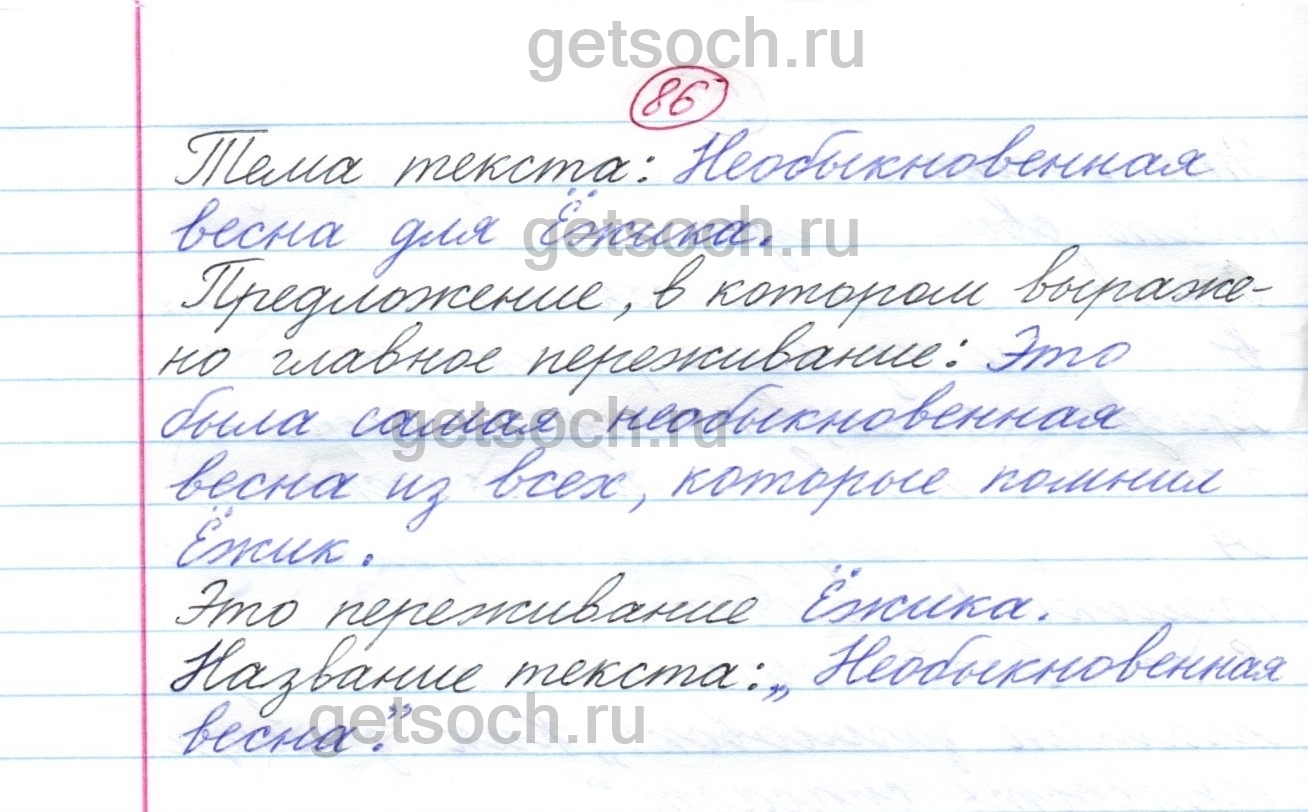 getsoch.ru
86
Тема текста: Необыкновенная
весна для Ёжика.
getsoch.ru
Предложение, в котором выраже-
но главное переживание: Это
была самая необыкновенная
getsoch.ru
весна из всех, которые помнил
Ёжик.
Это переживание Ёжика.
Название текста: „Необыкновенная
весна."
getsoch.ru